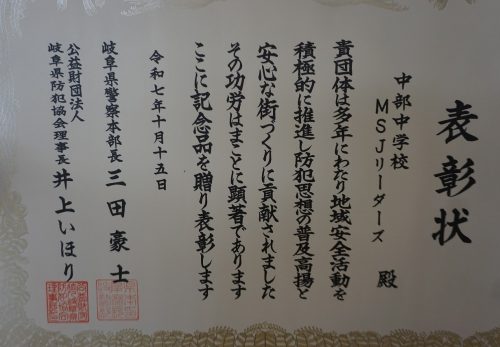 表彰状
中部中学校
MSJリーダーズ 殿
貴団体は多年にわたり地域安全活動を
積極的に推進し防犯思想の普及高揚と
安心な街づくりに貢献されました
その功労はまことに顕著であります
ここに記念品を贈り表彰します
令和七年十月十五日
岐阜県警察本部長 三田豪士
公益財団法人
岐阜県防犯協会理事長 井上いほり